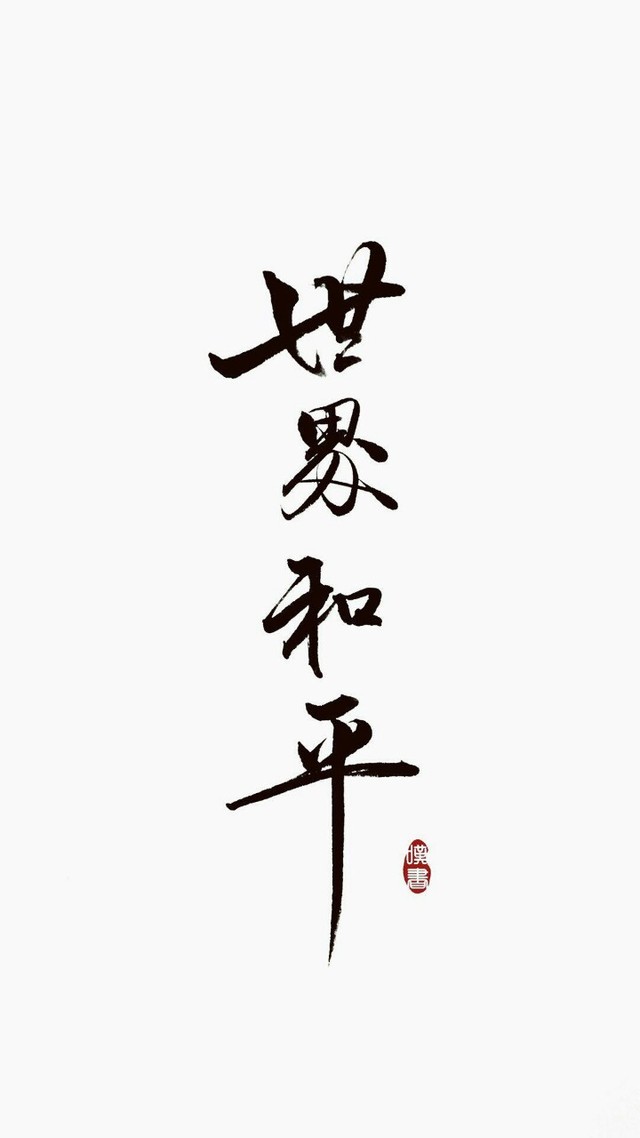 世界和平
嘆書